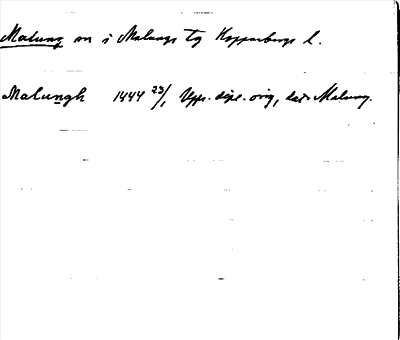 Malung sn i Malungs tg Kopparbergs l.
Malungh 1444 23/1 Upps. dipl. orig, dat. Malung.